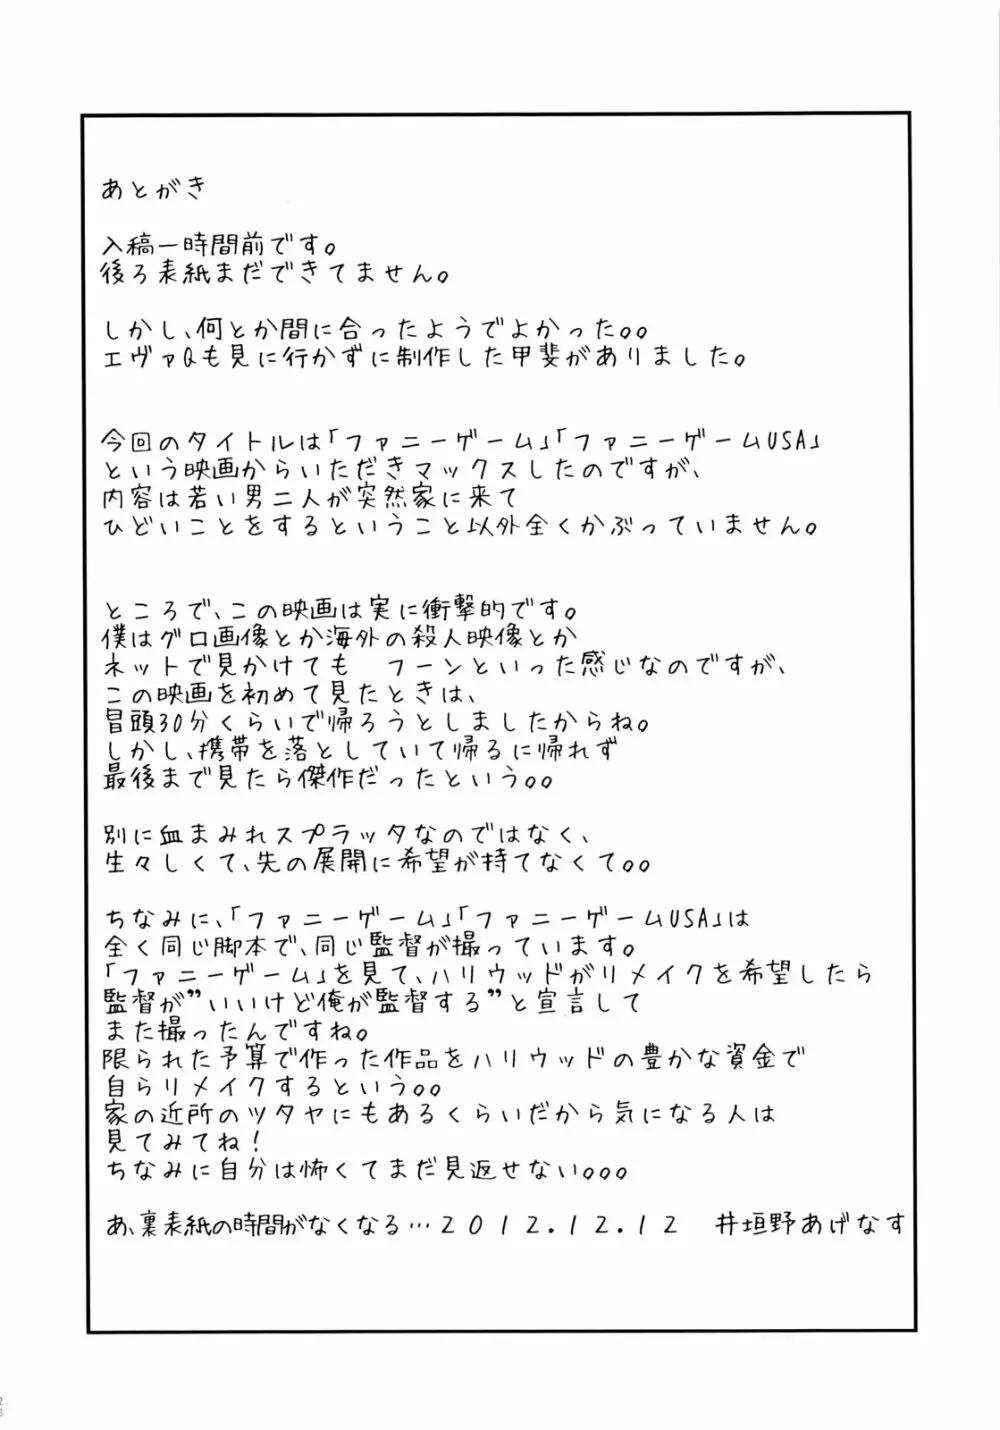 あとがき
入稿一時間前です。
後ろ表紙まだできてません。
しかし、何とか間に合ったようでよかった。。
エヴァQも見に行かずに制作した甲斐がありました。
今回のタイトルは「ファニーゲーム」「ファニーゲームUSA」
という映画からいただきマックスしたのですが、
内容は若い男二人が突然家に来て
ひどいことをするということ以外全くかぶっていません。
ところで、この映画は実に衝撃的です。
僕はグロ画像とか海外の殺人映像とか
ネットで見かけても　フーンといった感じなのですが、
この映画を初めて見たときは、
冒頭30分くらいで帰ろうとしましたからね。
しかし、携帯を落としていて帰るに帰れず
最後まで見たら傑作だったという。。
別に血まみれスプラッタなのではなく、
生々しくて、先の展開に希望が持てなくて。。
ちなみに、「ファニーゲーム」「ファニーゲームUSA」は
全く同じ脚本で、同じ監督が撮っています。
「ファニーゲーム」を見て、ハリウッドがリメイクを希望したら
監督が”いいけど俺が監督する”と宣言して
また撮ったんですね。
限られた予算で作った作品をハリウッドの豊かな資金で
自らリメイクするという。。
家の近所のツタヤにもあるくらいだから気になる人は
見てみてね！
ちなみに自分は怖くてまだ見返せない。。。
あ、裏表紙の時間がなくなる…2012.12.12　井垣野あげなす